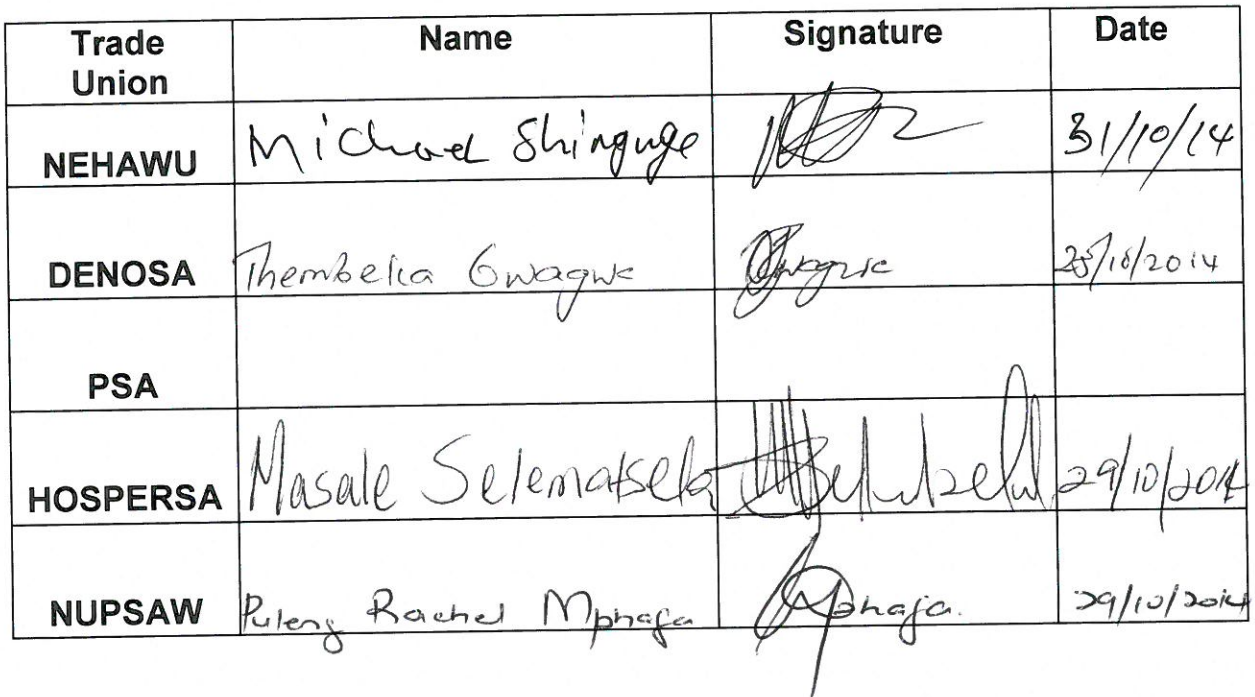 Trade Union Name Signature Date
NEHAWU Michael Shingange 31/10/14
DENOSA Thembeka Gwagwa Gwagwa /10/2014
PSA
HOSPERSA Masale Selematsela 29/10/2014
NUPSAW Puleng Rachel Mphafa Mphafa. 29/10/2014